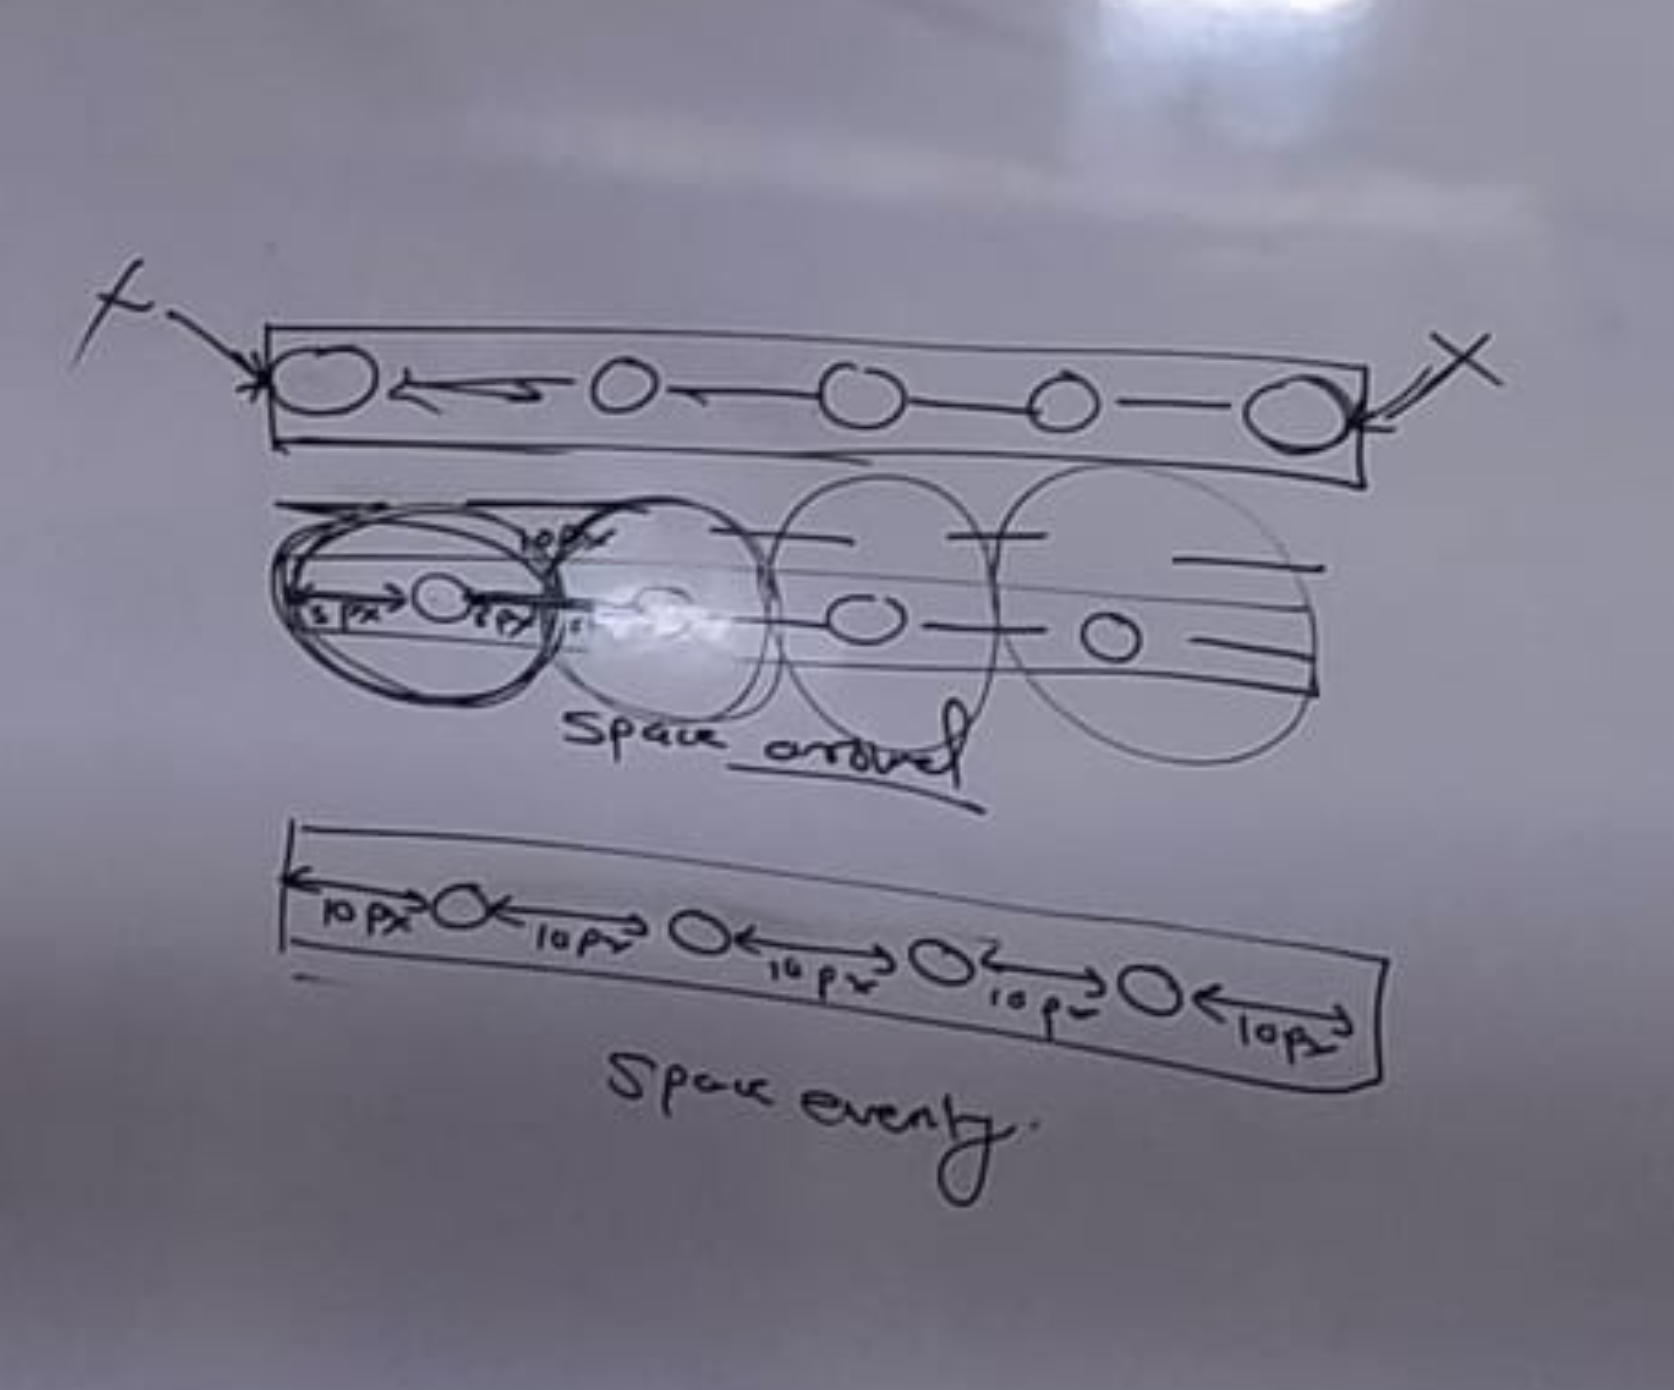 X X
10px
5px 5px
Space around
10px 10px 10px 10px 10px
Space evenly.